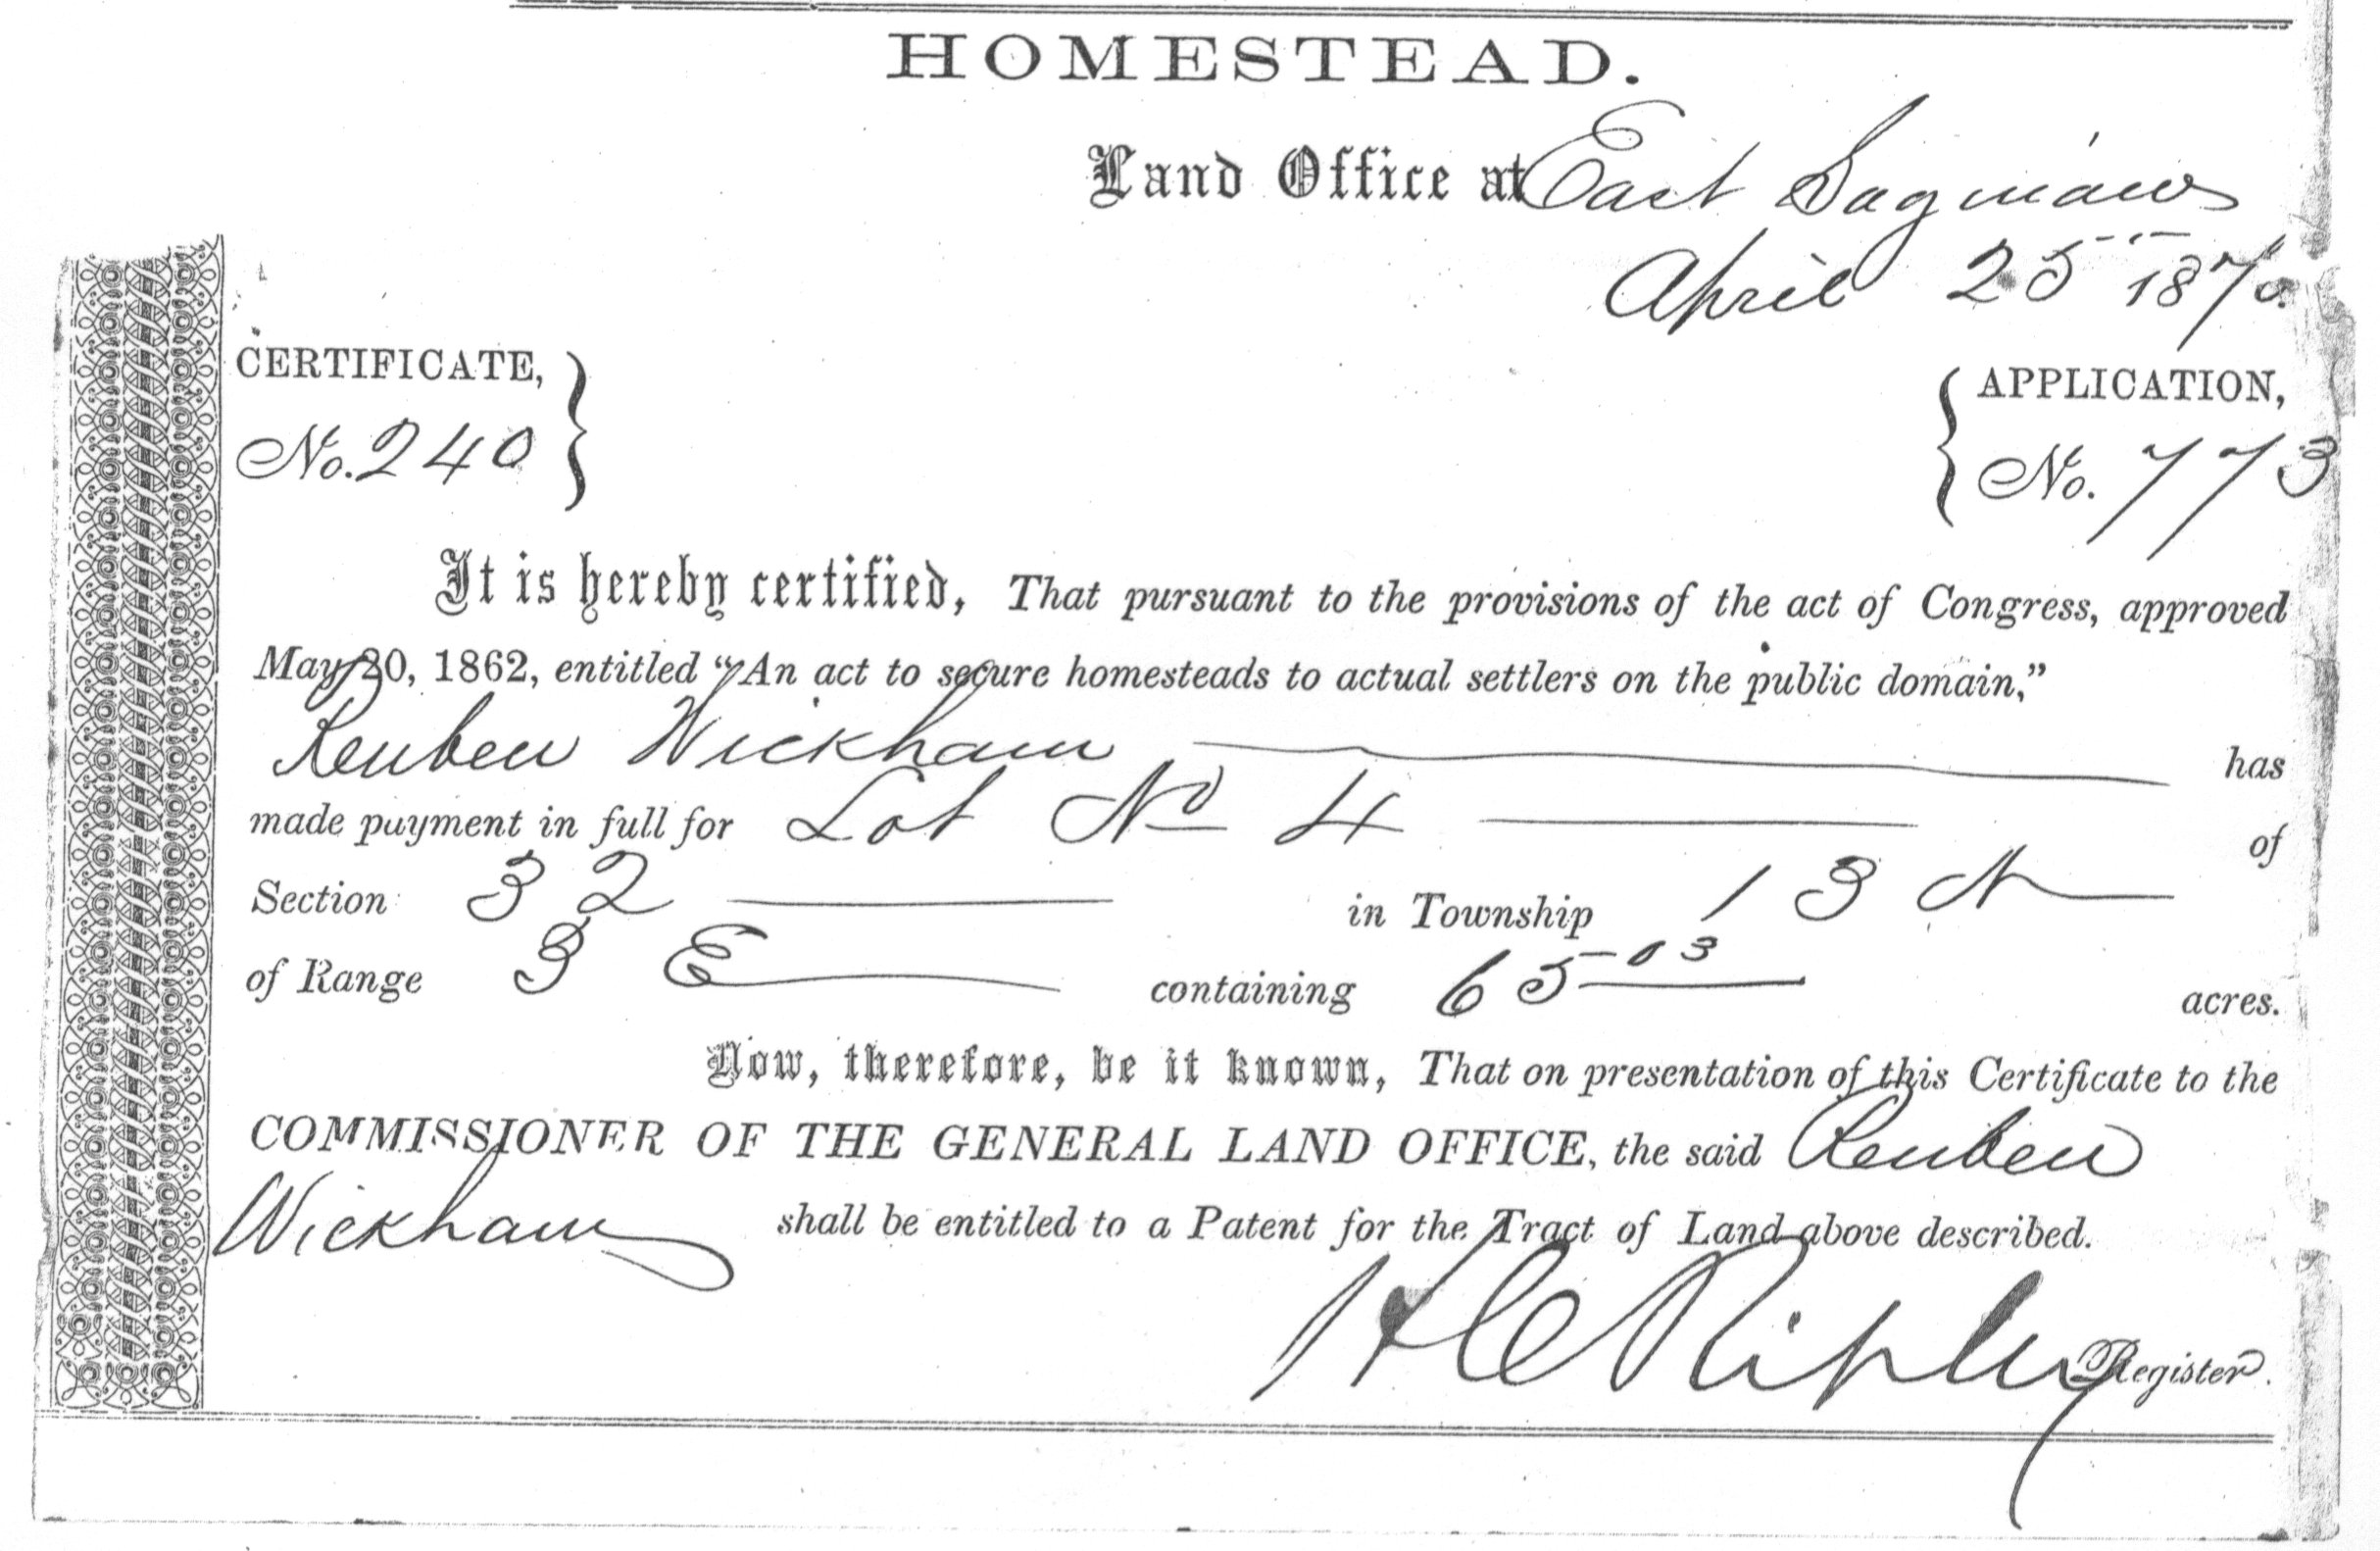 HOMESTEAD.
Land Office at East Saginaw
April 25 1870.
CERTIFICATE,
No. 240
APPLICATION,
No. 773
It is hereby certified, That pursuant to the provisions of the act of Congress, approved
May 20, 1862, entitled “An act to secure homesteads to actual settlers on the public domain,”
Reuben Wickham has
made payment in full for Lot No 4 of
Section 32 in Township 13 N
of Range 3 E containing 65 03 acres.
Now, therefore, be it known, That on presentation of this Certificate to the
COMMISSIONER OF THE GENERAL LAND OFFICE, the said Reuben
Wickham shall be entitled to a Patent for the Tract of Land above described.
H C Ripley Register.